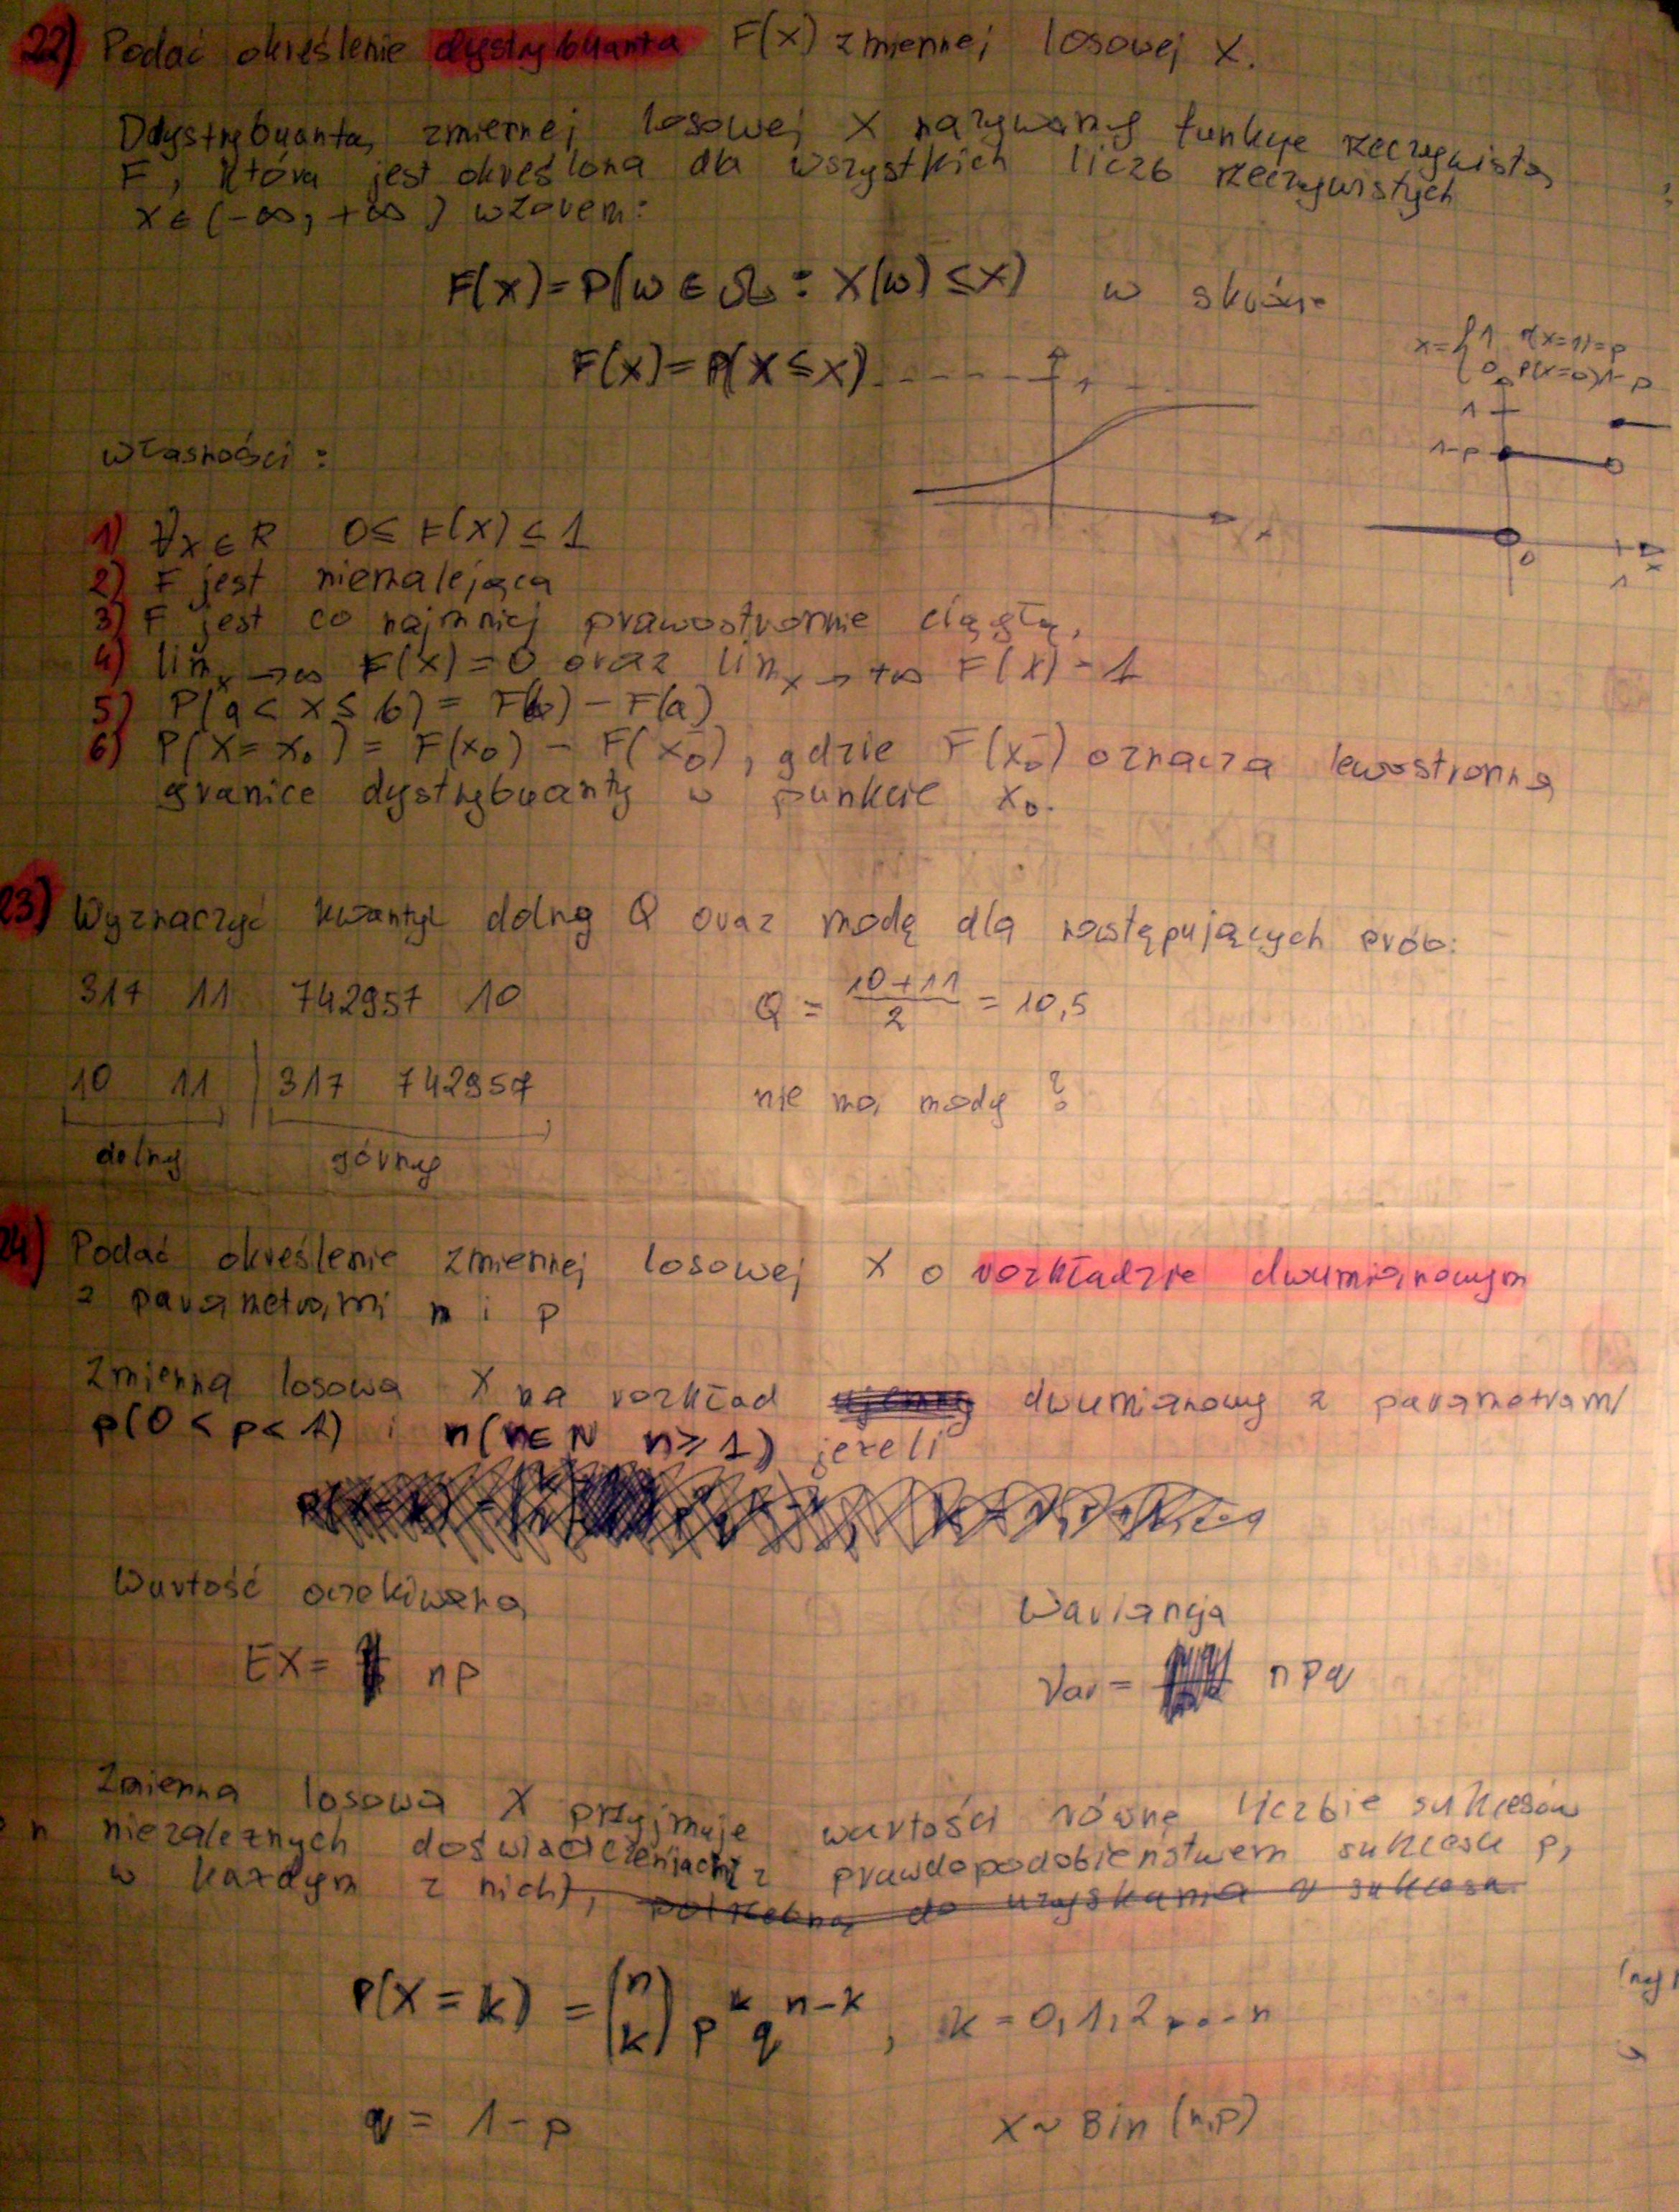 22) Podać określenie dystrybuanta F(x) zmiennej losowej X.
Ddystrybuantą zmiennej losowej X nazywamy funkcje rzeczywistą
F, która jest określona dla wszystkich liczb rzeczywistych
x ∈ (-∞, +∞) wzorem:
F(x) = P(ω ∈ Ω : X(ω) ≤ x) w skrócie
F(x) = P(X ≤ x)
1
x
x = { 1 P(x=1)=p
0 P(x=0)=1-p
1
1-p
0
1
x
własności:
1) ∀x ∈ R 0 ≤ F(x) ≤ 1
2) F jest niemalejąca
3) F jest co najmniej prawostronnie ciągłą,
4) lim x→∞ F(x) = 0 oraz lim x→+∞ F(x) = 1
5) P(a < X ≤ b) = F(b) - F(a)
6) P(X = x₀) = F(x₀) - F(x₀⁻), gdzie F(x₀⁻) oznacza lewostronną
granice dystrybuanty w punkcie x₀.
23) Wyznaczyć kwantyl dolny Q oraz modę dla następujących prób:
317 11 742957 10
Q = (10+11)/2 = 10,5
10 11 | 317 742957
nie ma mody ?
dolny górny
24) Podać określenie zmiennej losowej X o rozkładzie dwumianowym
z parametrami n i p
Zmienna losowa X ma rozkład dwumianowy z parametrami
p(0 < p < 1) i n(n ∈ N n ≥ 1) jeżeli
Wartość oczekiwana
Wariancja
EX = np
Var = npq
Zmienna losowa X przyjmuje wartości równe liczbie sukcesów
n niezależnych doświadczeniach z prawdopodobieństwem sukcesu p,
w każdym z nich, potrzebną do uzyskania sukcesu.
P(X = k) = (n k) p^k q^(n-k), k = 0,1,2,...n
q = 1 - p
X ~ Bin (n,p)